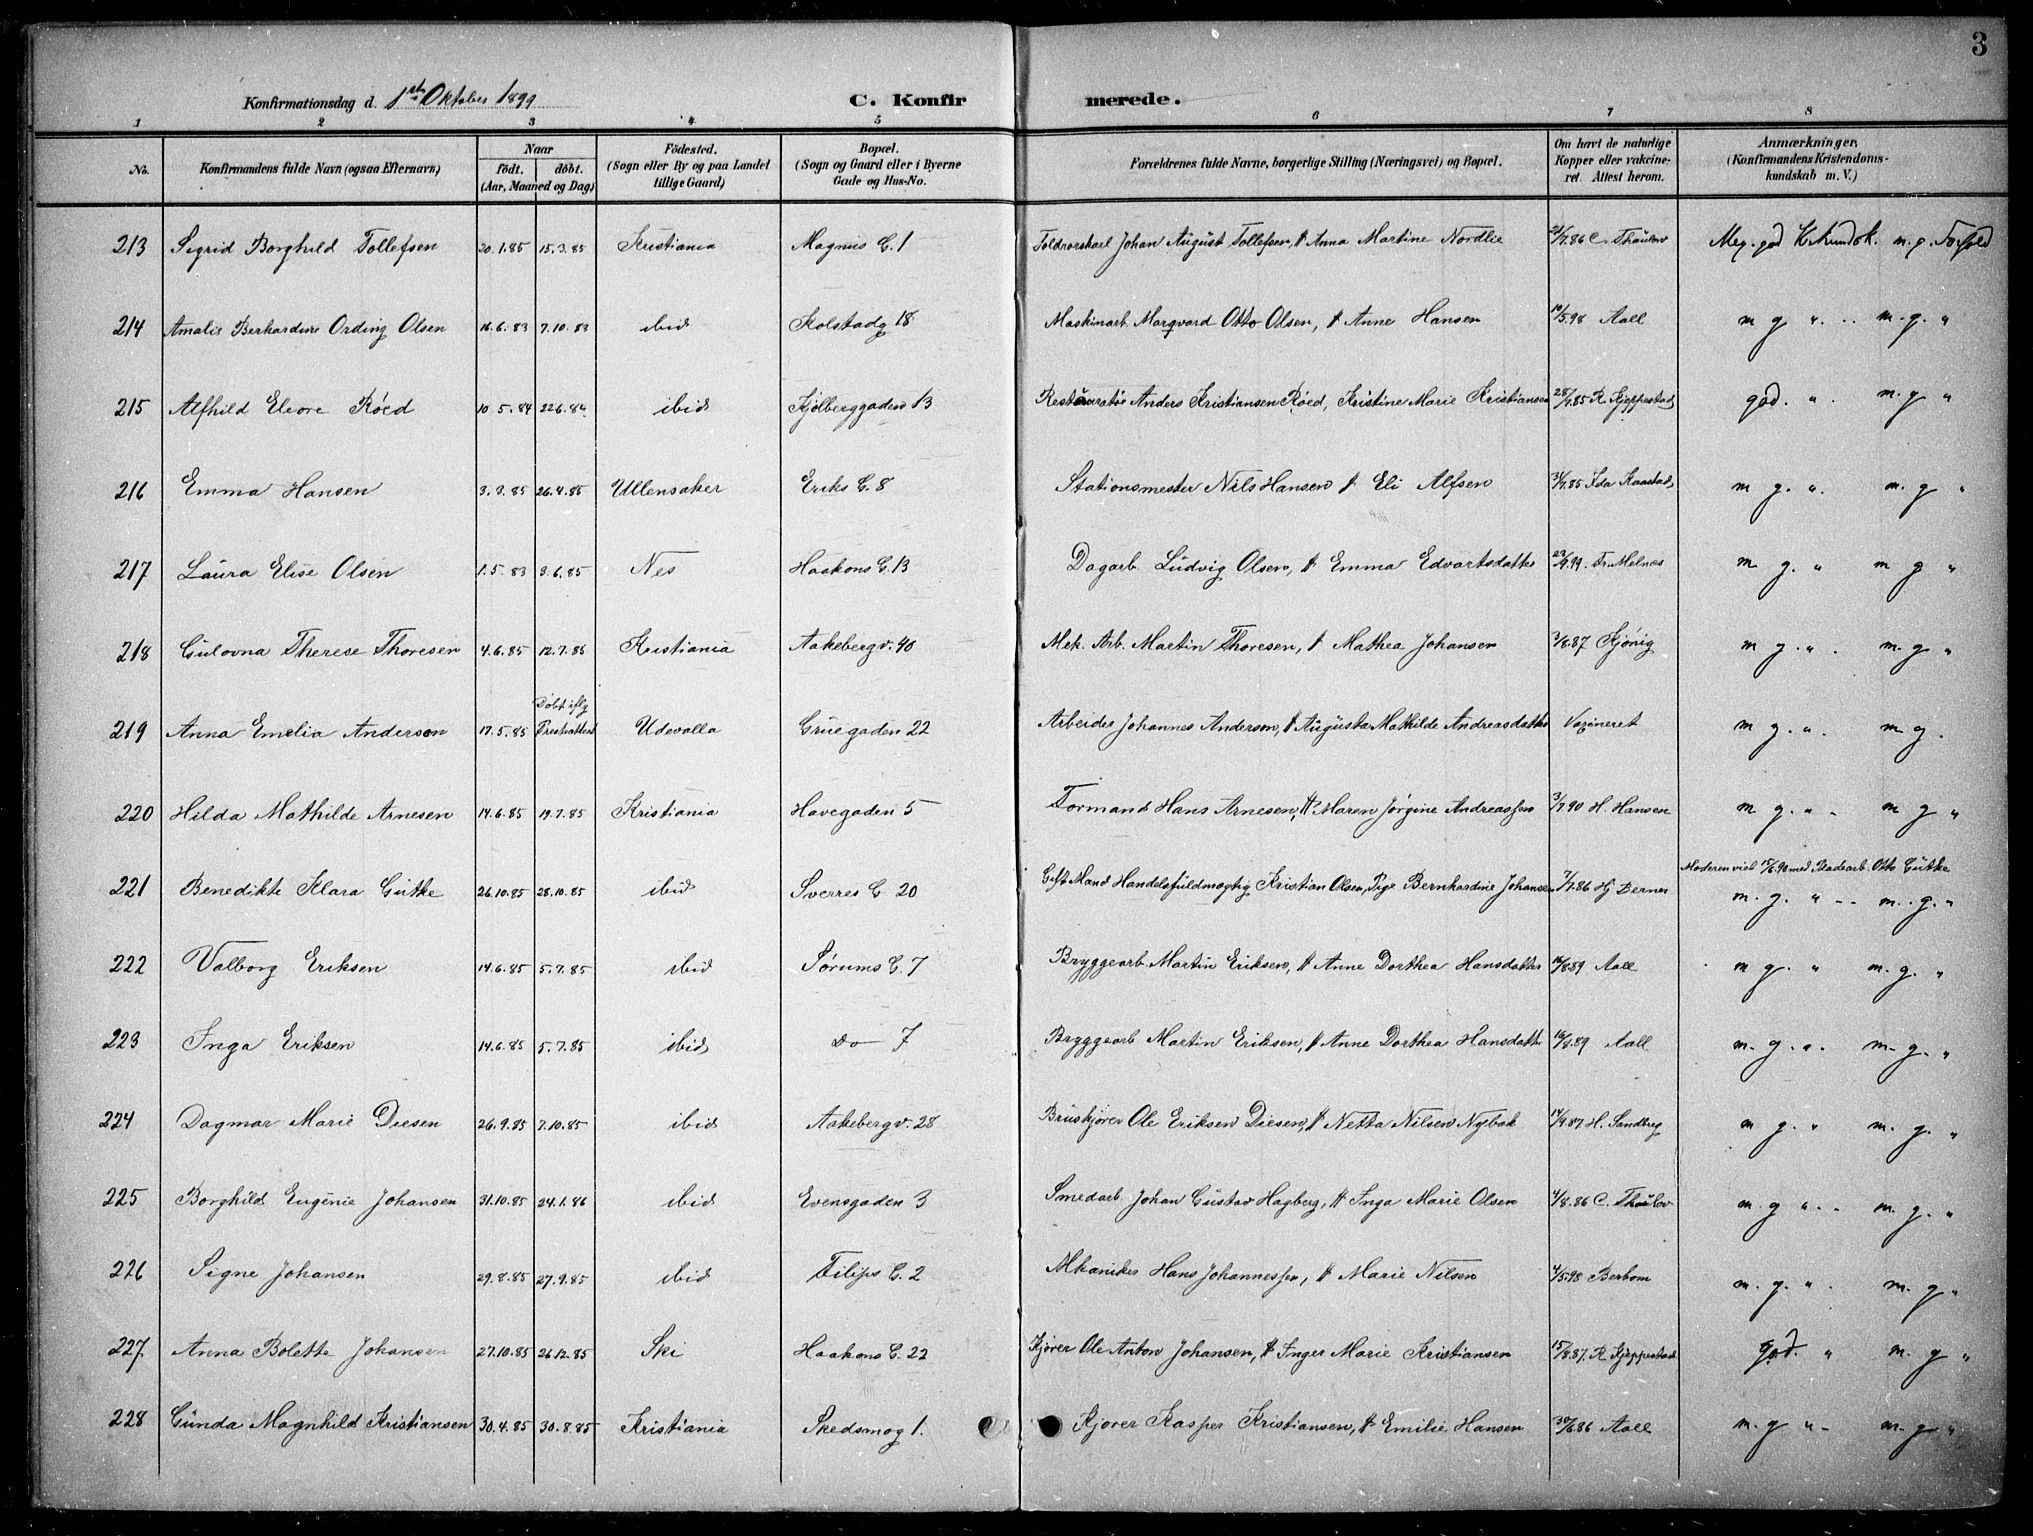 3
Konfirmationsdag d. 1ste Oktober 1899 C. Konfirmerede.
1 2 3 4 5 6 7 8
No. Konfirmandens fulde Navn (ogsaa Efternavn) Naar födt. döbt. (Aar, Maaned og Dag) Födested. (Sogn eller By og paa Landet tillige Gaard) Bopæl. (Sogn og Gaard eller i Byerne Gade og Hus-No. Forældrenes fulde Navne, borgerlige Stilling (Næringsvei) og Bopæl. Om havt de naturlige Kopper eller vakcineret. Attest herom. Anmærkninger. (Konfirmandens Kristendomskundskab m. V.)
213 Sigrid Borghild Tollefsen 20.1.85 15.3.85 Kristiania Magnus G. 1 Toldrorskarl Johan August Tollefsen, & Anna Martine Nordlie 21/7.86 C. Thaulow Meg. god K.kundsk. m. g. Forhold
214 Amalie Berhardine Ording Olsen 16.6.83 7.10.83 ibid Kolstadg 18 Maskinarb. Marqvard Otto Olsen, & Anne Hansen 10/5.98 Aall m g " m.g. "
215 Alfhild Eleore Röed 10.5.84 22.6.84 ibid Kjölberggaden 13 Restauratör Anders Kristiansen Röed, Kristine Marie Kristiansen 28/7.85 R. Kjeppestad god. " m. g "
216 Emma Hansen 3.3.85 26.4.85 Ullensaker Eriks G. 8 Stationsmester Nils Hansen & Eli Alfsen 31/7.85 Ida Kaastad m g. " m. g "
217 Laura Elise Olsen 1.5.83 3.6.85 Nes Haakons G. 13 Dagarb. Ludvig Olsen, & Emma Edvartsdatter 23/9.99. Fr. Melnæs m g. " m g "
218 Gulovna Therese Thoresen 4.6.85 12.7.85 Kristiania Aakebergv. 40 Mek. Arb. Martin Thoresen, & Mathea Johansen 3/8.87 Kjönig m g. " m. g "
219 Anna Emelia Anderson 17.5.85 Döbt iflg Prestattest Udevalla Gruegaden 22 Arbeider Johannes Anderson, & Augusta Mathilde Andreasdatter Vaxineret m g. " m g.
220 Hilda Mathilde Arnesen 14.6.85 19.7.85 Kristiania Havegaden 5 Formand Hans Arnesen, & Maren Jörgine Andreassen 3/7.90 H. Hansen m g. " m g "
221 Benedikte Klara Gutke 26.10.85 28.10.85 ibid Sverres G. 20 Gift Mand Handelsfuldmægtig Kristian Olsen, Pige Bernhardine Johansen 7/7.86 Hj Berner Moderen viet 15/6.90 med Pladearb. Otto Gutke m. g. " m. g. "
222 Valborg Eriksen 14.6.85 5.7.85 ibid Sørums G. 7 Bryggearb Martin Eriksen, & Anne Dorthea Hansdatter 16/8.89 Aall m g. " m. g. "
223 Inga Eriksen 14.6.85 5.7.85 ibid do 7 Bryggearb Martin Eriksen, & Anne Dorthea Hansdatter 16/8.89 Aall m. g. " m. g. "
224 Dagmar Marie Diesen 26.9.85 7.10.85 ibid Aakebergv. 28 Bruskjörer Ole Eriksen Diesen, & Netta Nilsen Nybak 14/9.87 H. Sandberg m g. " m. g. "
225 Borghild Eugenie Johansen 31.10.85 24.1.86 ibid Evensgaden 3 Smedarb. Johan Gustav Hagberg, & Inga Marie Olsen 4/8.86 C. Thaulow m. g " m. g. "
226 Signe Johansen 29.8.85 27.9.85 ibid Filips G. 2 Mkaniker Hans Johannessen, & Marie Nilsen 4/5.98 Berbom m. g. " m. g "
227 Anna Bolette Johansen 27.10.85 26.12.85 Ski Haakons G. 22 Kjörer Ole Anton Johansen, & Inger Marie Kristiansen 15/8.87. R. Kjeppestad God. " m. g "
228 Gunda Magnhild Kristiansen 30.4.85 30.8.85 Kristiania Skedsmog 1. Kjorer Kasper Kristiansen, & Emilie Hansen 30/6.86 Aall m. g " m. g "